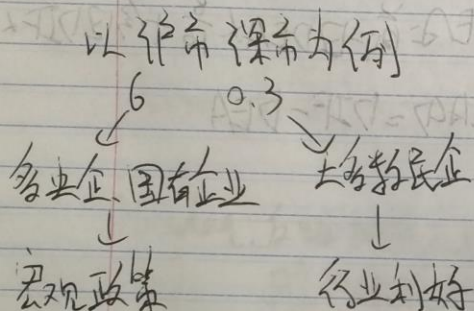 以沪市深市为例
6 0.3
多央企、国有企业 大多数民企
宏观政策 行业利好